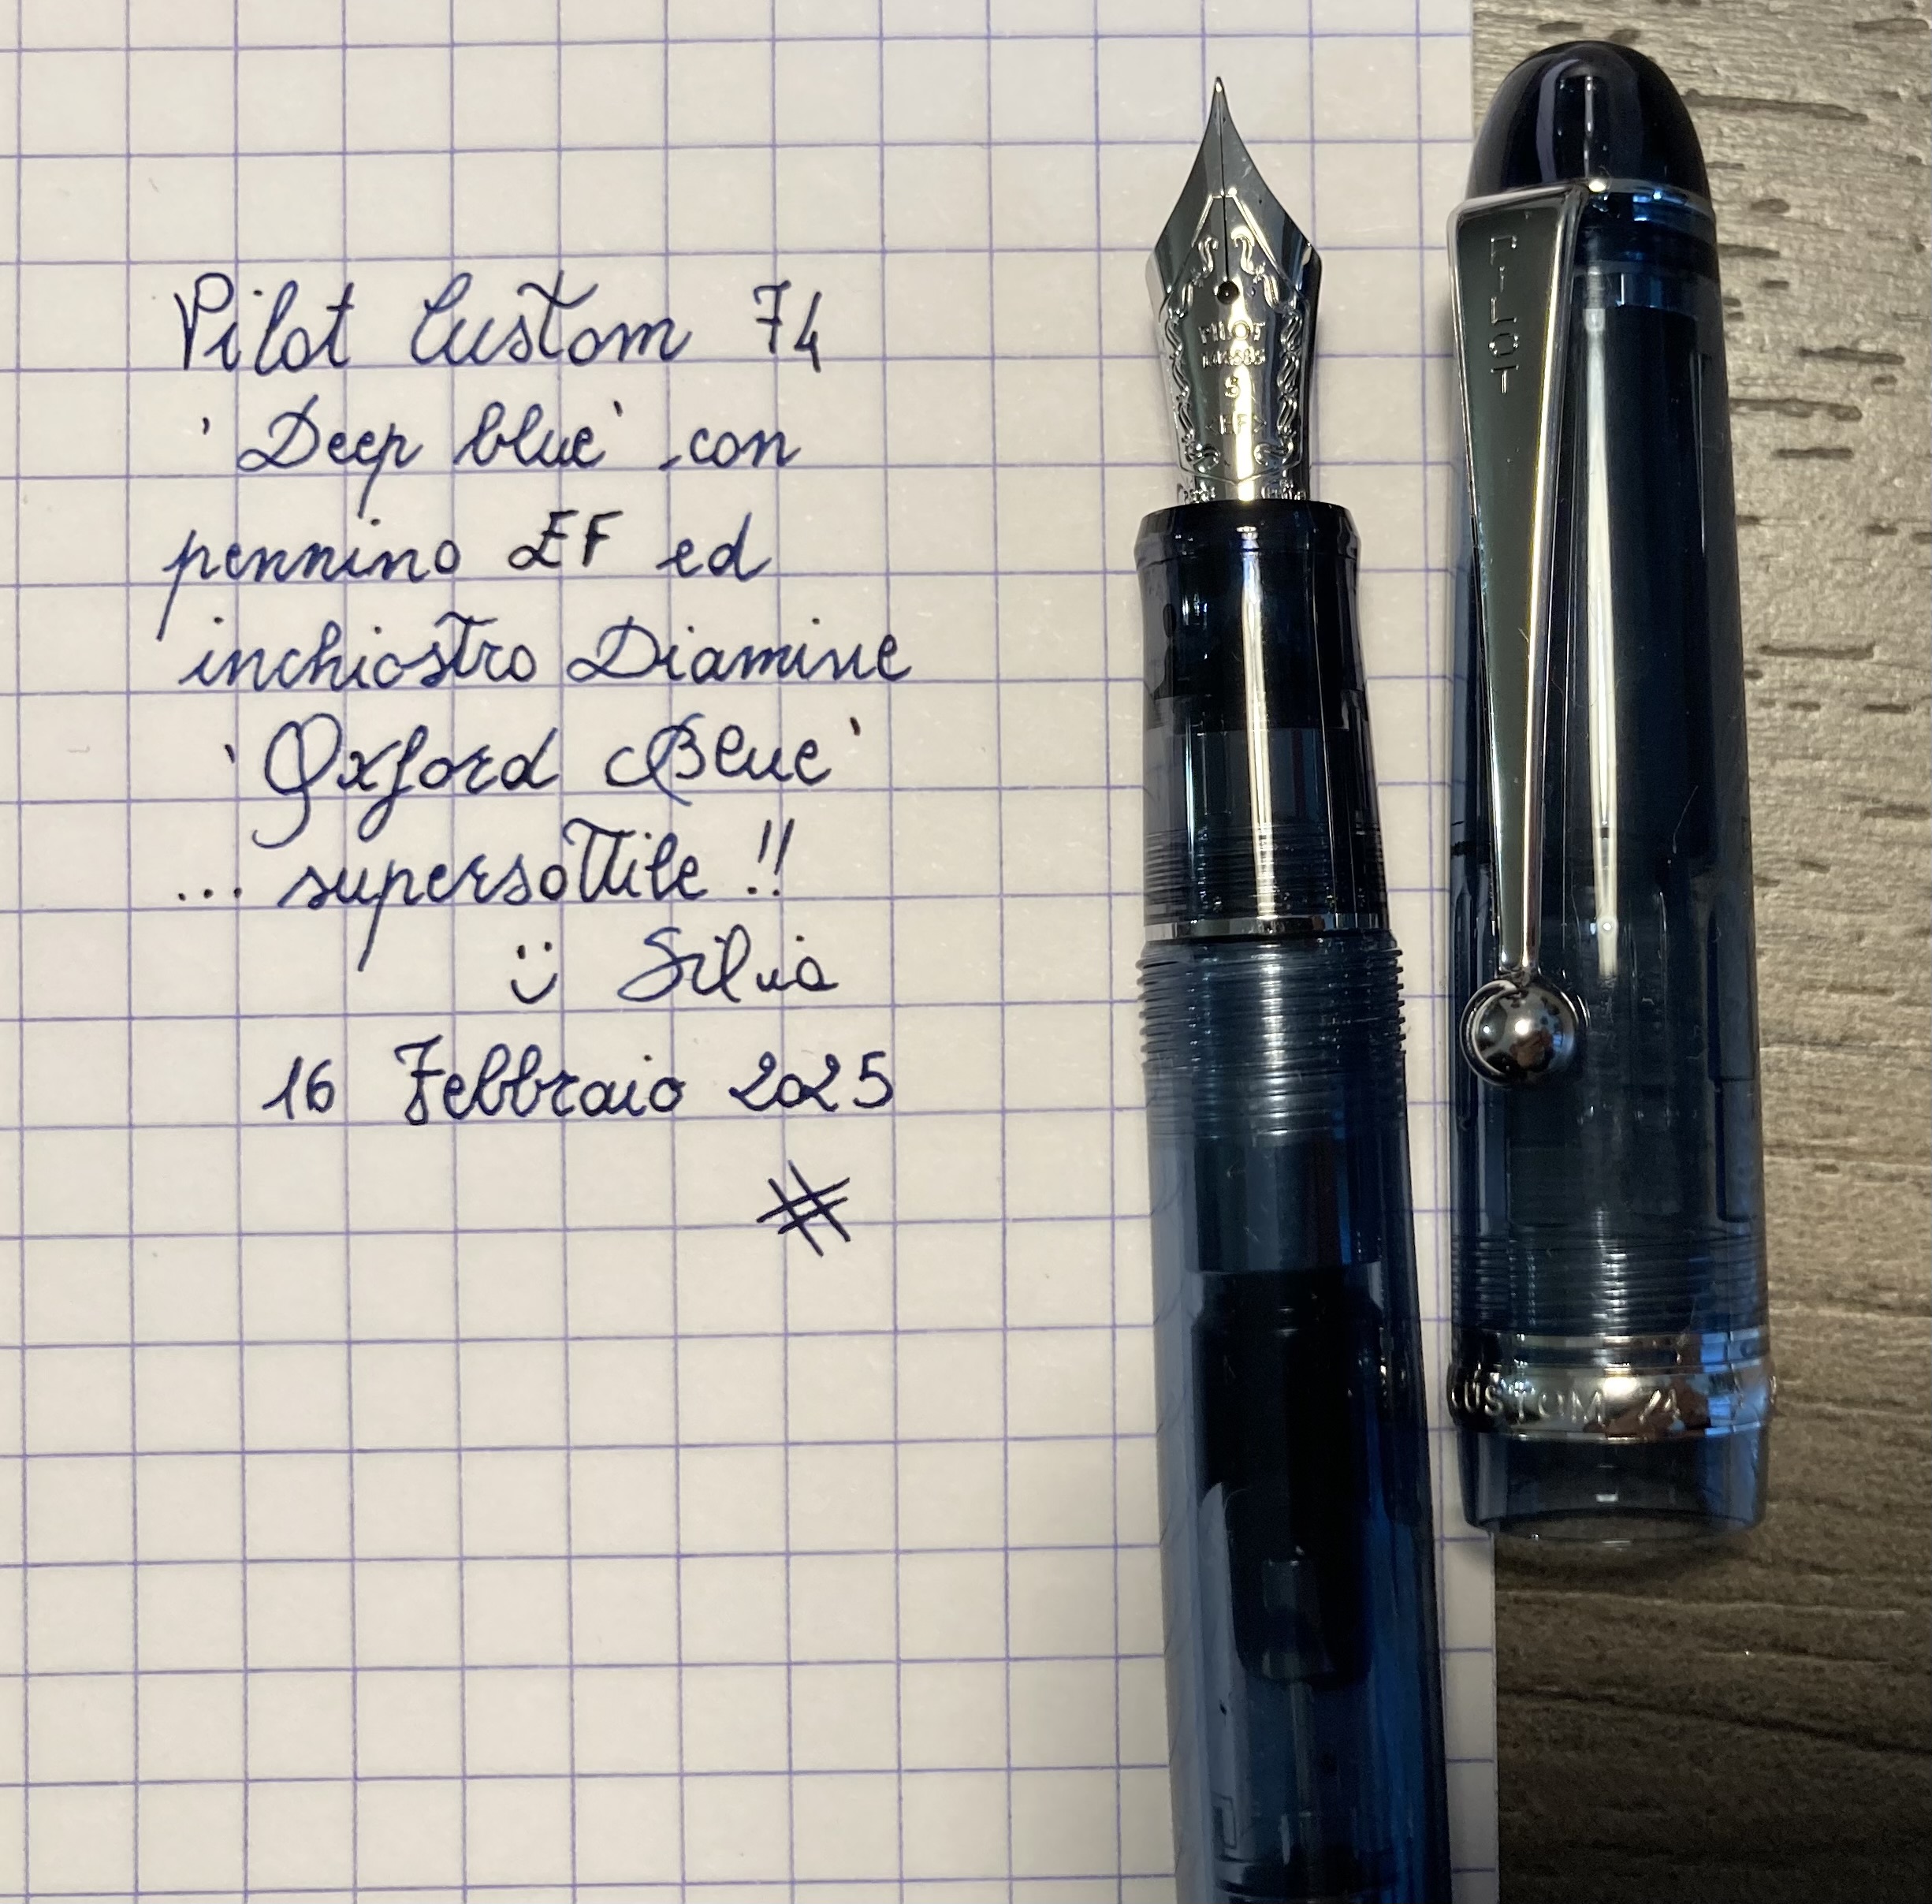 Pilot Custom 74
'Deep blue' con
pennino EF ed
inchiostro Diamine
'Oxford Blue'
... supersottile !!
Silvia
16 Febbraio 2025
#
PILOT
14K585
5
<EF>
PILOT
CUSTOM 74